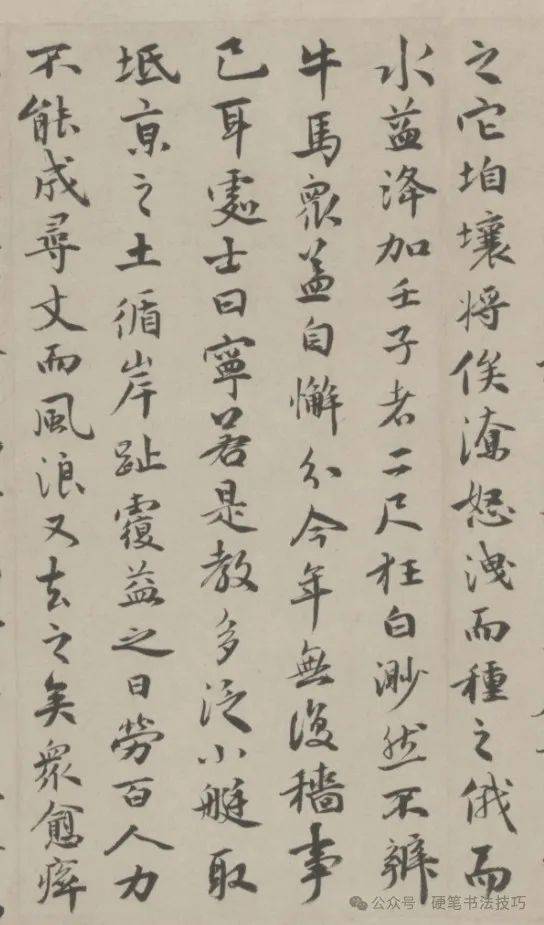 之它垍壤将俟潦怒洩而種之俄而
水益洚加壬子者二尺狂白渺然不辨
牛馬眾益自懈分今年無復穡事
已耳處士曰寧若是教多泛小艇取
坻京之土循岸趾覆益之日勞百人力
不能成尋丈而風浪又去之矣眾愈瘁
公众号 · 硬笔书法技巧